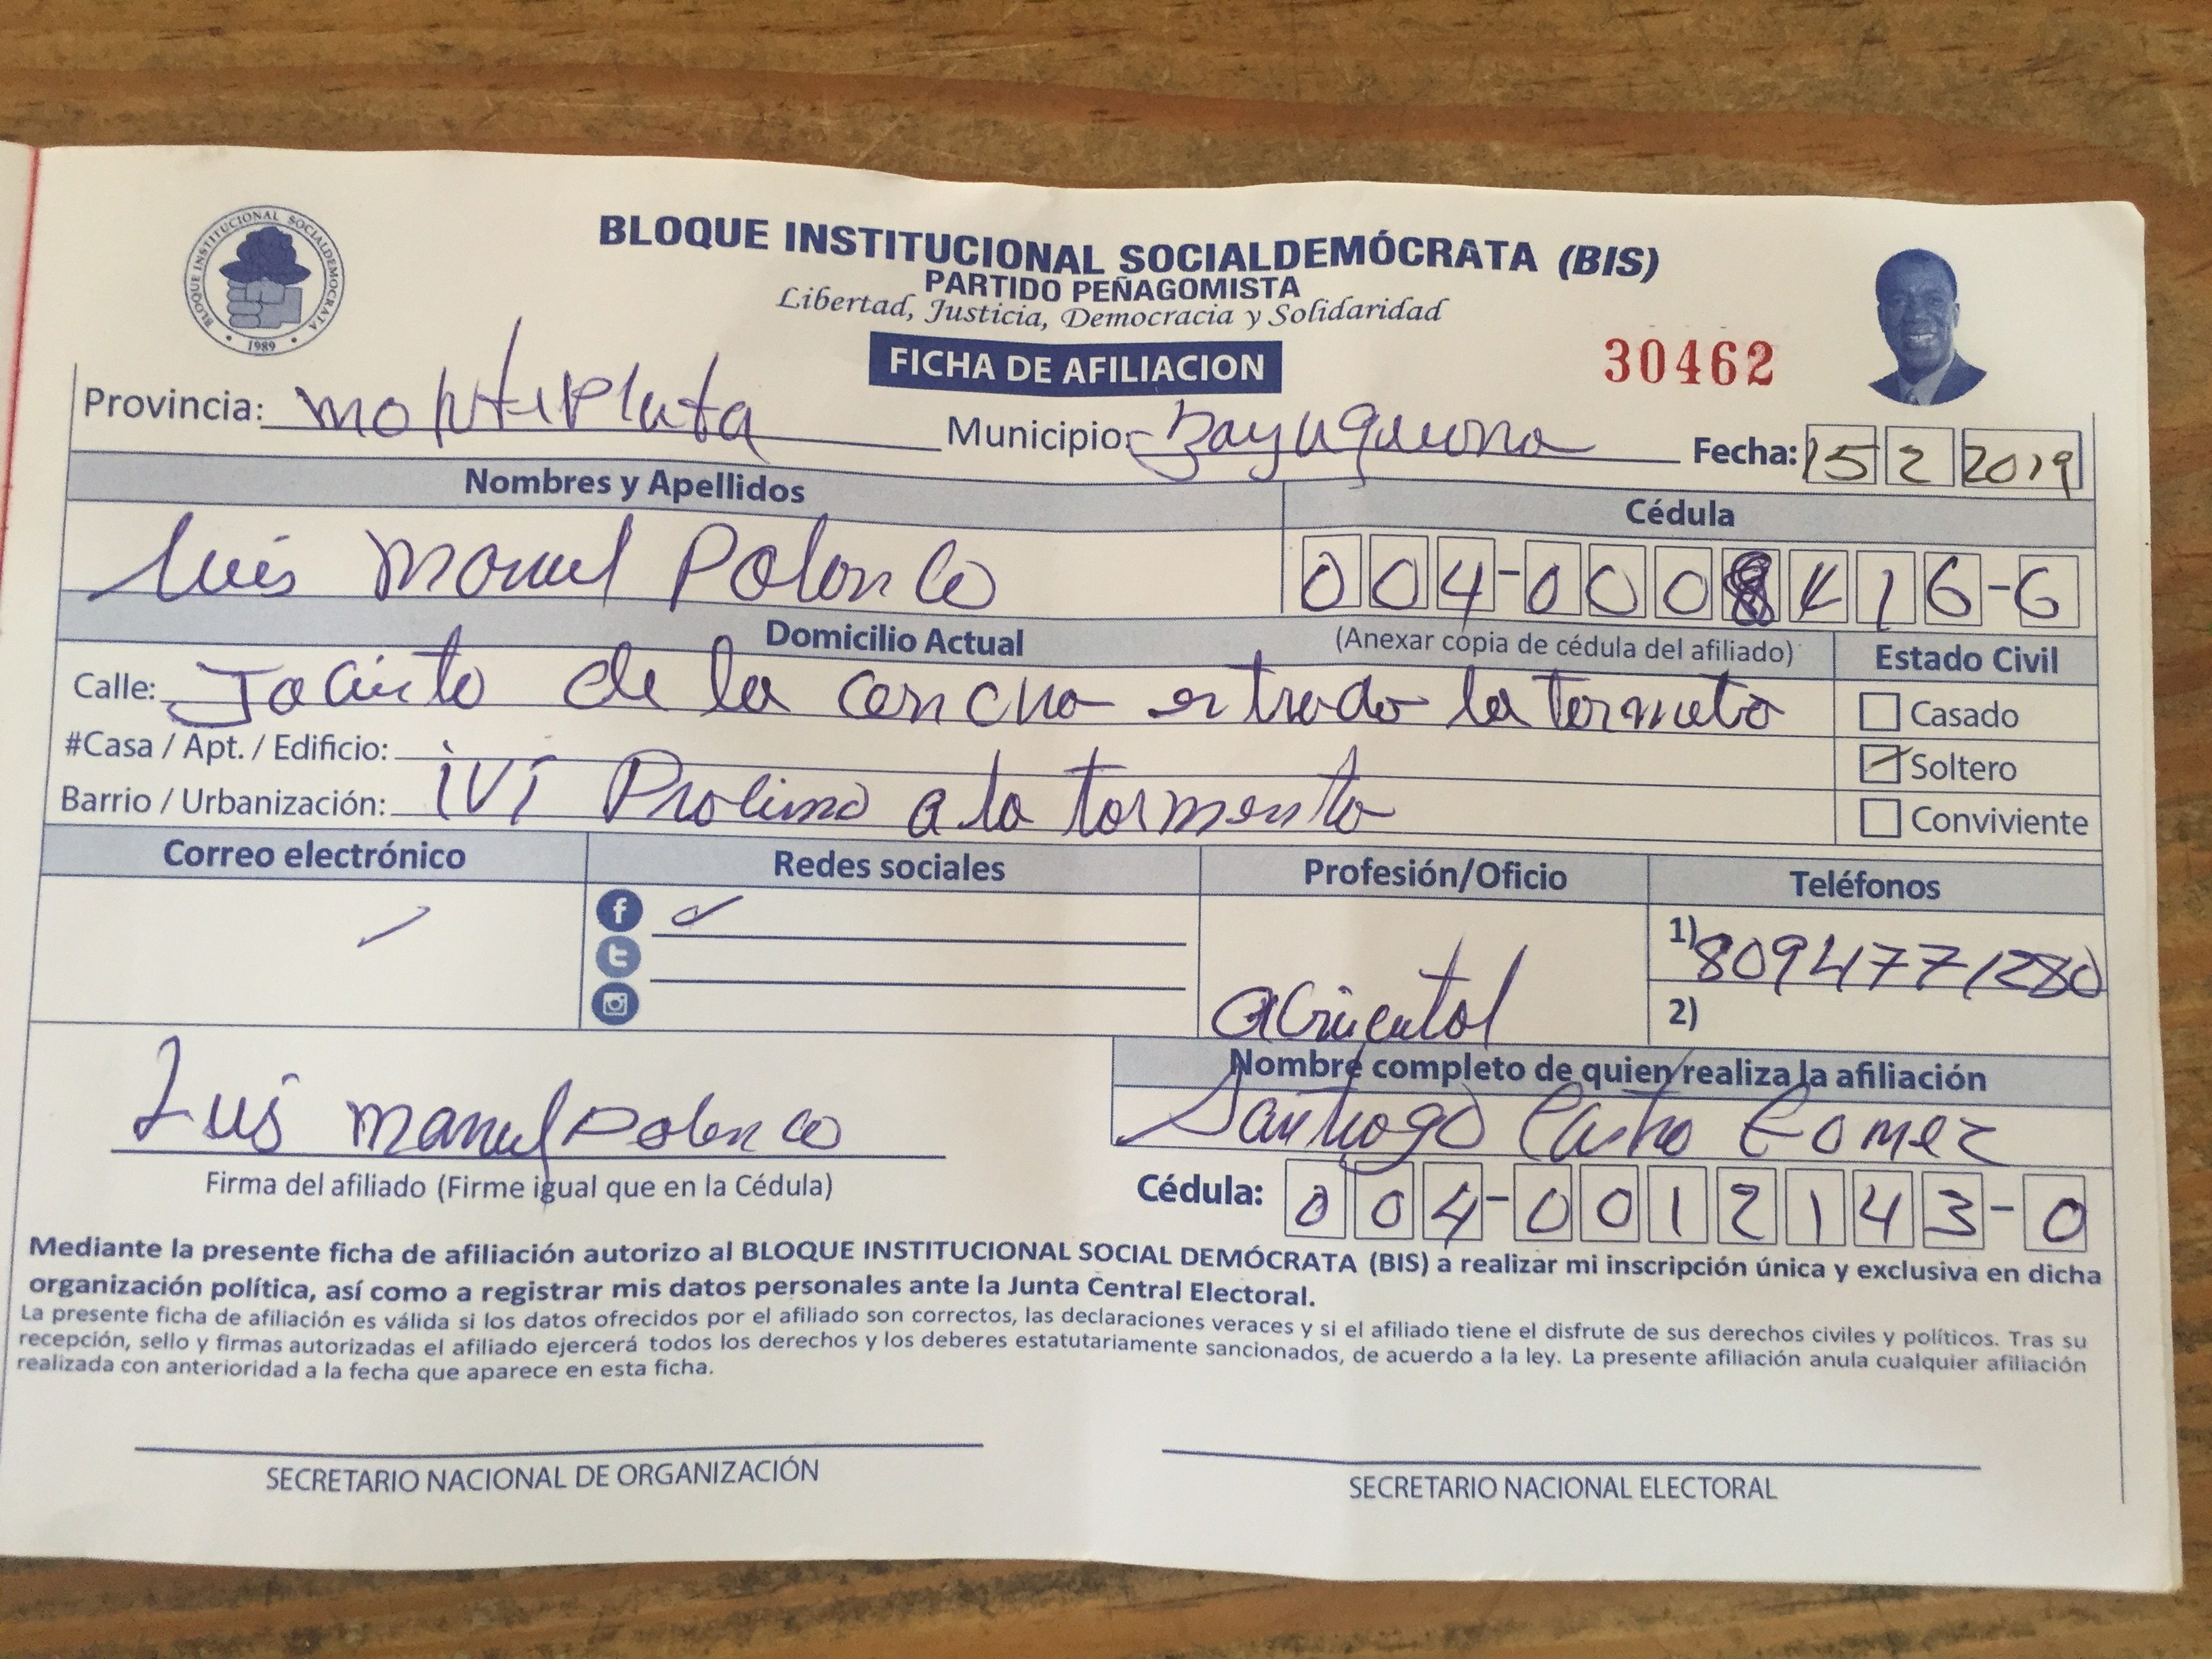 BLOQUE INSTITUCIONAL SOCIALDEMOCRATA
1989
BLOQUE INSTITUCIONAL SOCIALDEMÓCRATA (BIS)
PARTIDO PEÑAGOMISTA
Libertad, Justicia, Democracia y Solidaridad
FICHA DE AFILIACION
30462
Provincia: Municipio: Fecha: 15 2 2019
Nombres y Apellidos
Cédula
Luis Manuel Polonco
004-000 16-6
Domicilio Actual
(Anexar copia de cédula del afiliado)
Estado Civil
Calle: Jacinto de la
Casado
#Casa / Apt. / Edificio:
Soltero
Barrio / Urbanización: a la tormenta
Conviviente
Correo electrónico
Redes sociales
Profesión/Oficio
Teléfonos
1) 8094771280
2)
Nombre completo de quien realiza la afiliación
Luis manuel Polonco
Santiago Castro Gomez
Firma del afiliado (Firme igual que en la Cédula)
Cédula: 004-0012143-0
Mediante la presente ficha de afiliación autorizo al BLOQUE INSTITUCIONAL SOCIAL DEMÓCRATA (BIS) a realizar mi inscripción única y exclusiva en dicha
organización política, así como a registrar mis datos personales ante la Junta Central Electoral.
La presente ficha de afiliación es válida si los datos ofrecidos por el afiliado son correctos, las declaraciones veraces y si el afiliado tiene el disfrute de sus derechos civiles y políticos. Tras su
recepción, sello y firmas autorizadas el afiliado ejercerá todos los derechos y los deberes estatutariamente sancionados, de acuerdo a la ley. La presente afiliación anula cualquier afiliación
realizada con anterioridad a la fecha que aparece en esta ficha.
SECRETARIO NACIONAL DE ORGANIZACIÓN
SECRETARIO NACIONAL ELECTORAL